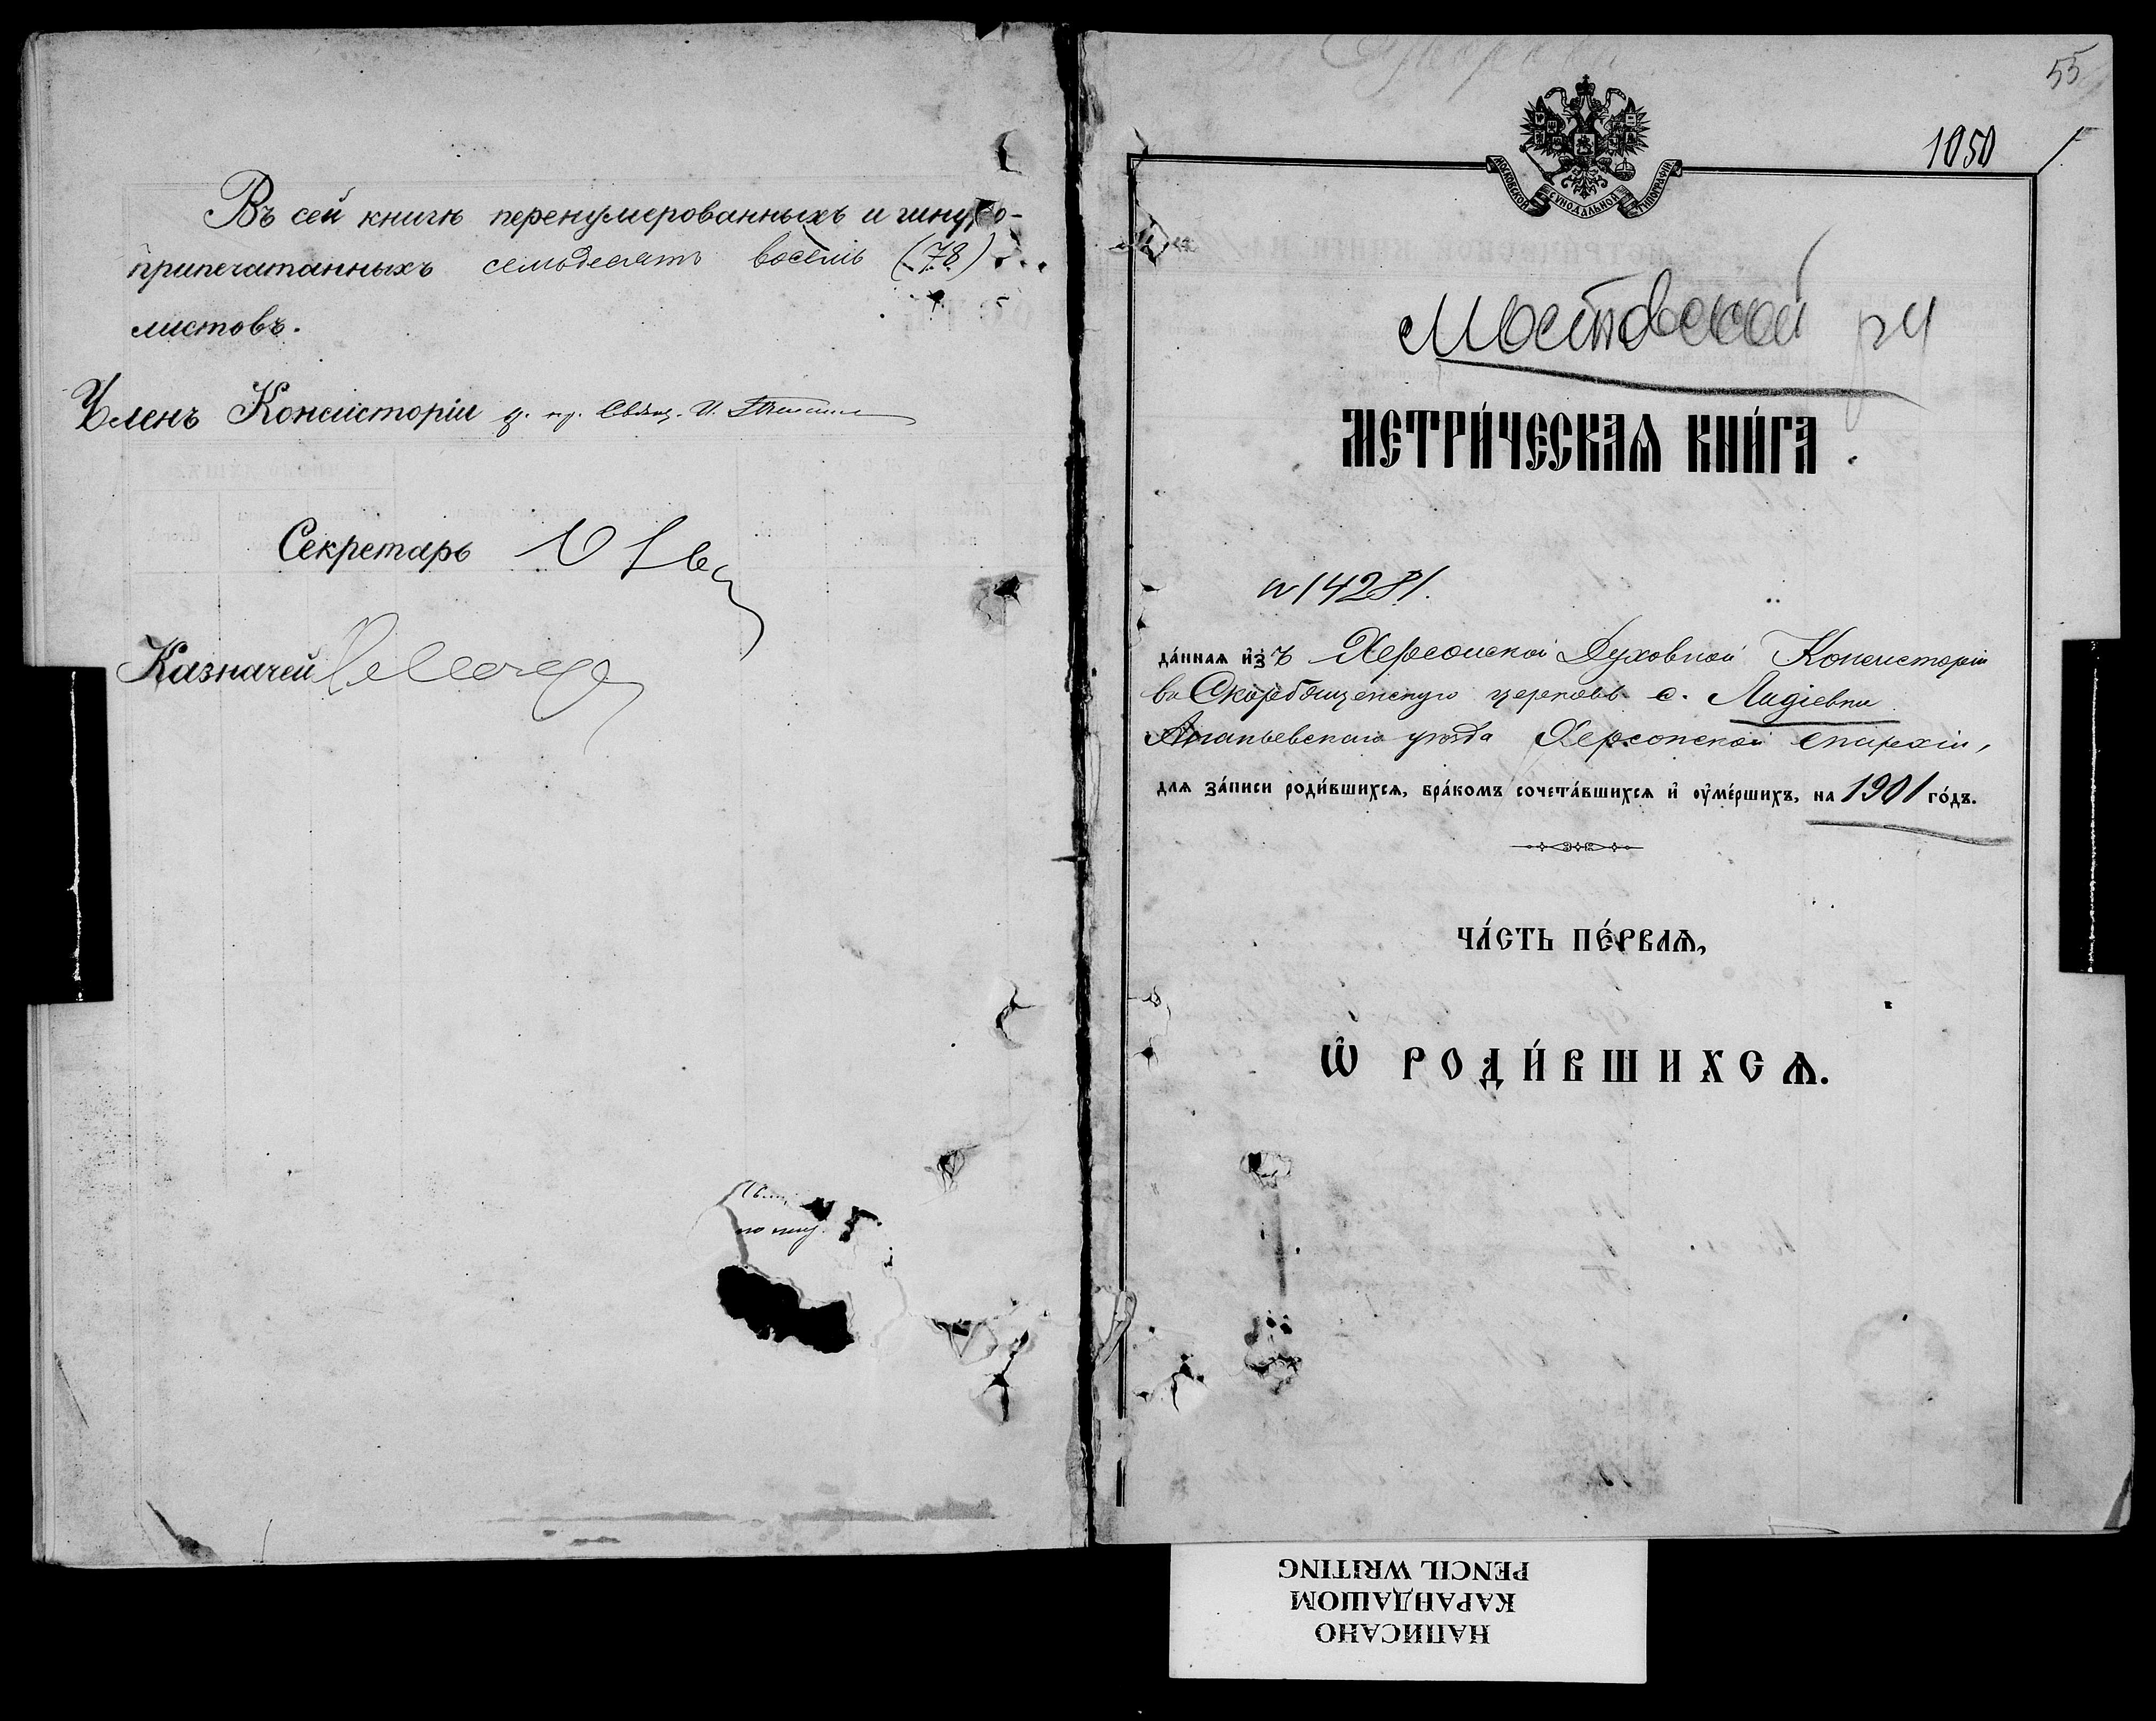 Въ сей книгѣ перенумерованныхъ и шнуро-
припечатанныхъ семьдесятъ восемь (78)
листовъ.
Членъ Консисторіи Свящ. И.
Секретарь
Казначей
55
1050
МОСКОВСКОЙ СѴНОДАЛЬНОЙ ТИПОГРАФІИ
Мостовской рч
МЕТРИ́ЧЕСКАѦ КНИ́ГА
N 14281.
да́ннаѧ и҆зъ Херсонской Духовной Консисторіи
въ Скорбященскую церковь с. Лидіевки
Ананьевскаго уѣзда Херсонской епархіи,
длѧ за́писи роди́вшихсѧ, бра́комъ сочета́вшихсѧ и҆ оу҆ме́ршихъ, на 1901 го́дъ.
ЧА́СТЬ ПЕ́РВАѦ,
Ѡ҆ РОДИ́ВШИХСѦ.
НАПИСАНО
КАРАНДАШОМ
PENCIL WRITING